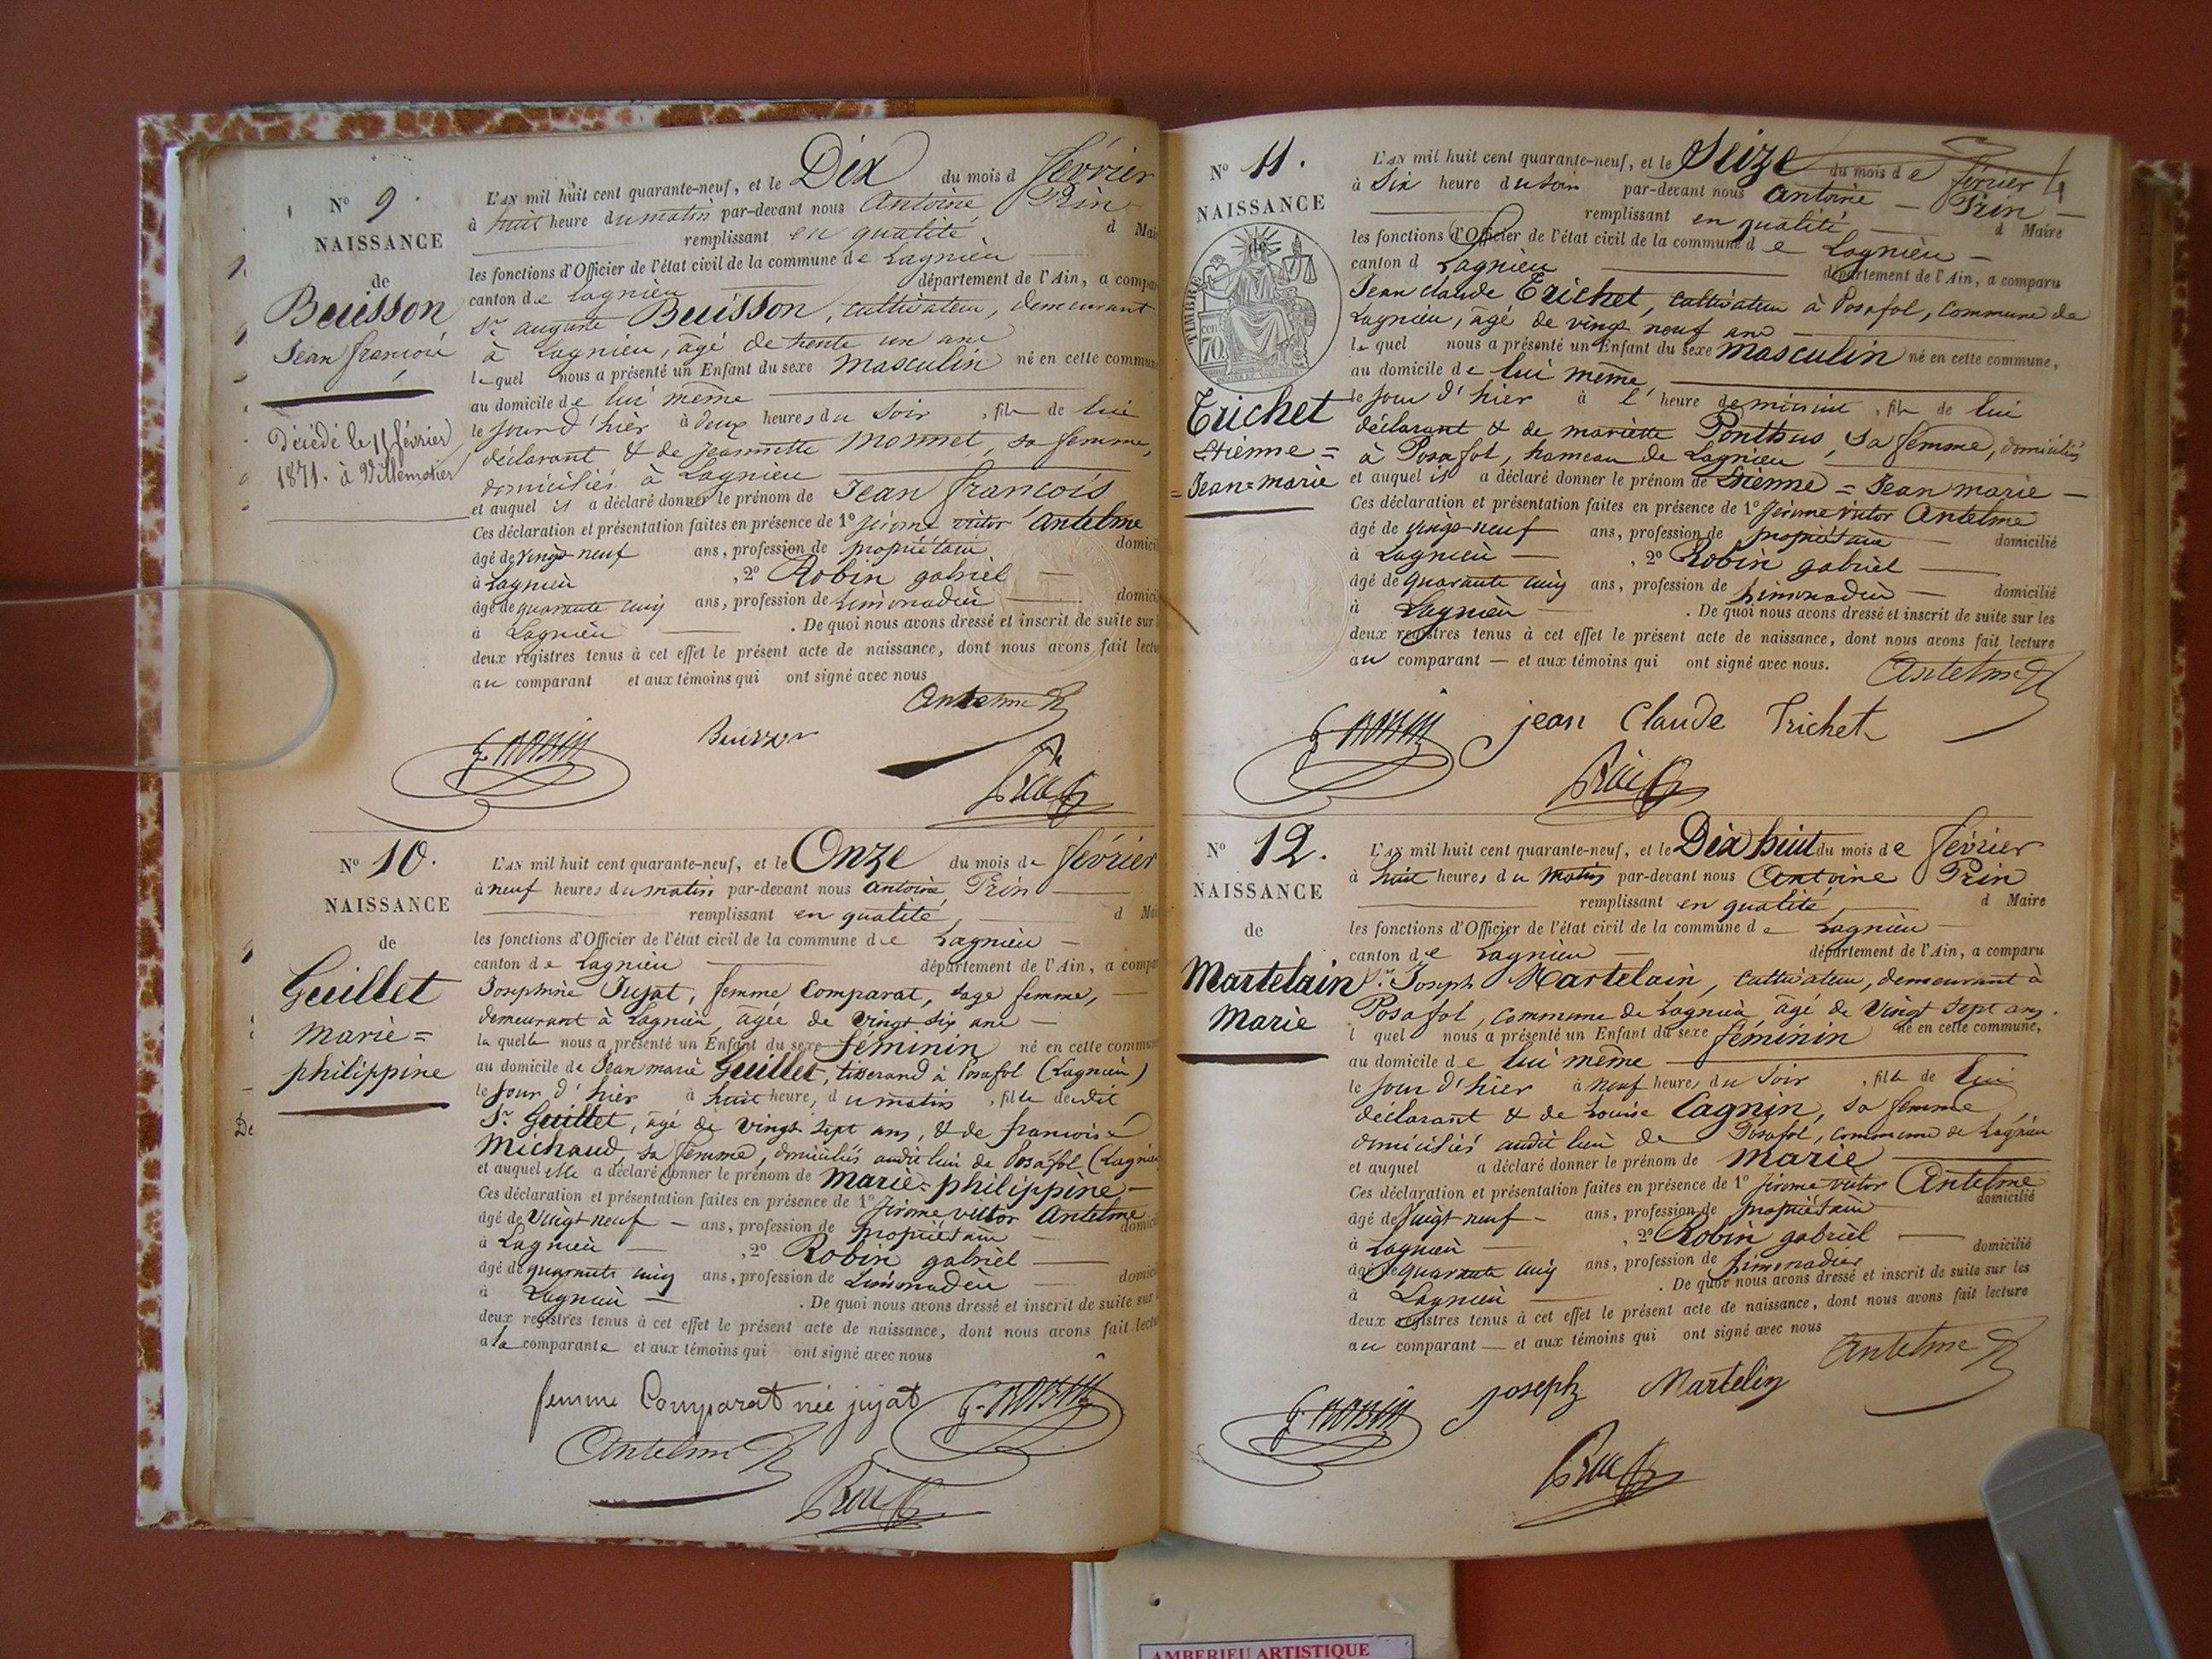 N° 9.
NAISSANCE
de
Buisson
Jean françois
Décédé le 11 février
1871. à Villemotier
L'AN mil huit cent quarante-neuf, et le Dix du mois d février
à huit heure du matin par-devant nous Antoine Prin
remplissant en qualité d Mai
les fonctions d'Officier de l'état civil de la commune de Lagnieu
canton de Lagnieu département de l'Ain, a compa
Sr auguste Buisson, cultivateur, demeurant
à Lagnieu, âgé de trente un ans
lequel nous a présenté un Enfant du sexe masculin né en cette commun
au domicile de lui même
le jour d'hier à deux heures du soir, fils de lui
déclarant & de Jeannette Monnet, sa femme,
domiciliés à Lagnieu
et auquel il a déclaré donner le prénom de Jean françois
Ces déclaration et présentation faites en présence de 1° Jérome victor Antelme
âgé de vingt-neuf ans, profession de propriétaire domici
à Lagnieu, 2° Robin gabriel
âgé de quarante cinq ans, profession de Limonadier domici
à Lagnieu. De quoi nous avons dressé et inscrit de suite sur
deux registres tenus à cet effet le présent acte de naissance, dont nous avons fait lectu
au comparant et aux témoins qui ont signé avec nous
Antelme
G. ROBIN Buisson
Prin
N° 10.
NAISSANCE
de
Guillet
Marie=
philippine
L'AN mil huit cent quarante-neuf, et le Onze du mois de février
à neuf heures du matin par-devant nous antoine Prin
remplissant en qualité, d Mai
les fonctions d'Officier de l'état civil de la commune de Lagnieu
canton de Lagnieu département de l'Ain, a compa
Josephine Jujat, femme Comparat, sage femme,
demeurant à Lagnieu, âgée de vingt six ans
laquelle nous a présenté un Enfant du sexe féminin né en cette commun
au domicile de Jean marie Guillet, tisserand à Posafol (Lagnieu)
le jour d'hier à huit heure, du matin, fille dudit
Sr Guillet, âgé de vingt sept ans, & de françoise
Michaud, sa femme, domiciliés audit lieu de Posafol (Lagnieu
et auquel elle a déclaré donner le prénom de Marie=philippine
Ces déclaration et présentation faites en présence de 1° Jérome victor Antelme
âgé de Vingt-neuf ans, profession de propriétaire domici
à Lagnieu, 2° Robin gabriel
âgé de quarante cinq ans, profession de Limonadier domici
à Lagnieu. De quoi nous avons dressé et inscrit de suite sur
deux registres tenus à cet effet le présent acte de naissance, dont nous avons fait lectu
a la comparante et aux témoins qui ont signé avec nous
femme Comparat née jujat G. ROBIN
Antelme
Prin
N° 11.
NAISSANCE
de
TIMBRE
70.
Trichet
Etienne=
=Jean=marie
L'AN mil huit cent quarante-neuf, et le Seize du mois de février
à Six heure du soir par-devant nous antoine Prin
remplissant en qualité d Maire
les fonctions d'Officier de l'état civil de la commune de Lagnieu
canton d Lagnieu département de l'Ain, a comparu
Jean claude Trichet, cultivateur à Posafol, commune de
Lagnieu, âgé de vingt neuf ans
lequel nous a présenté un Enfant du sexe masculin né en cette commune,
au domicile de lui même,
le jour d'hier à l'heure de minuit, fils de lui
déclarant & de mariette Ponthus, sa femme, domiciliés
à Posafol, hameau de Lagnieu
et auquel il a déclaré donner le prénom de Etienne=Jean marie
Ces déclaration et présentation faites en présence de 1° Jérome victor Antelme
âgé de vingt-neuf ans, profession de propriétaire domicilié
à Lagnieu, 2° Robin gabriel
âgé de quarante cinq ans, profession de Limonadier domicilié
à Lagnieu. De quoi nous avons dressé et inscrit de suite sur les
deux registres tenus à cet effet le présent acte de naissance, dont nous avons fait lecture
au comparant et aux témoins qui ont signé avec nous.
Antelme
G. ROBIN jean Claude Trichet
Prin
N° 12.
NAISSANCE
de
Martelain
Marie
L'AN mil huit cent quarante-neuf, et le Dix huit du mois de février
à huit heures du matin par-devant nous Antoine Prin
remplissant en qualité d Maire
les fonctions d'Officier de l'état civil de la commune de Lagnieu
canton de Lagnieu département de l'Ain, a comparu
Sr Joseph Martelain, cultivateur, demeurant à
Posafol, commune de Lagnieu âgé de vingt sept ans.
l quel nous a présenté un Enfant du sexe féminin né en cette commune,
au domicile de lui même
le jour d'hier à neuf heures du soir, fille de lui
déclarant & de Louise Cagnin, sa femme
domiciliés audit lieu de Posafol, commune de Lagnieu
et auquel a déclaré donner le prénom de marie
Ces déclaration et présentation faites en présence de 1° Jérome victor Antelme
âgé de Vingt neuf ans, profession de propriétaire domicilié
à Lagnieu, 2° Robin gabriel
âgé de quarante cinq ans, profession de Limonadier domicilié
à Lagnieu. De quoi nous avons dressé et inscrit de suite sur les
deux registres tenus à cet effet le présent acte de naissance, dont nous avons fait lecture
au comparant et aux témoins qui ont signé avec nous
Antelme
G. ROBIN joseph Martelin
Prin
AMBERIEU ARTISTIQUE